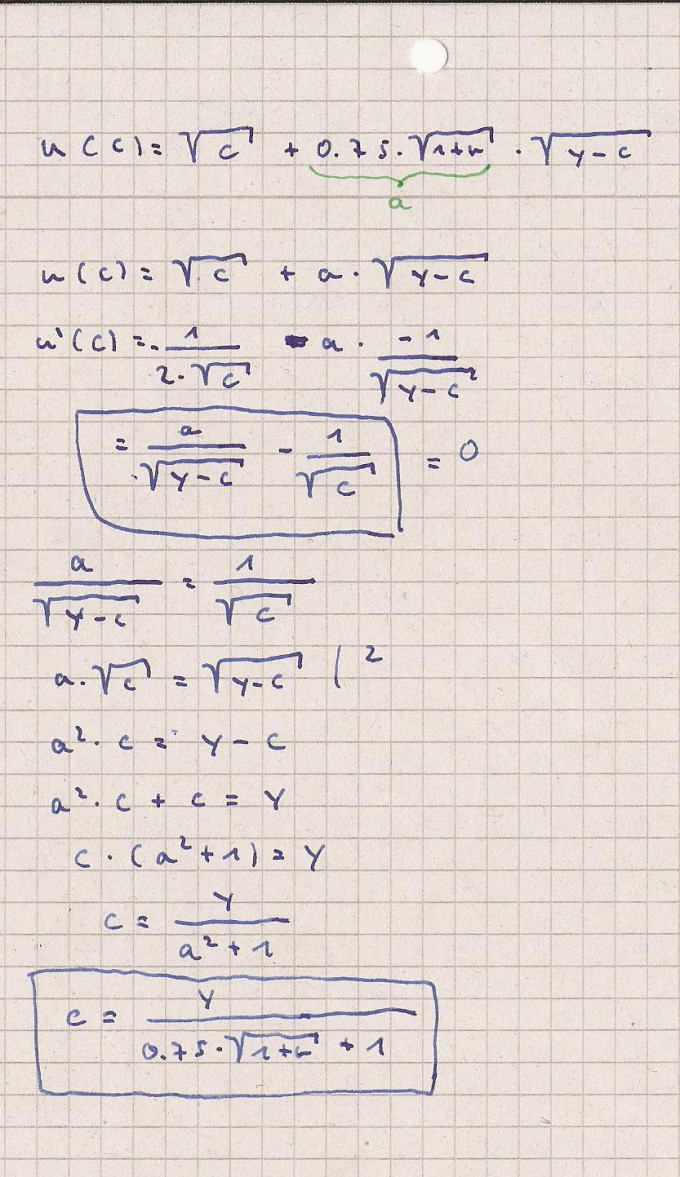 u(c) = √c + 0.75 · √(1+r) · √(y-c)
a
u(c) = √c + a · √(y-c)
u'(c) = 1/(2·√c) - a · -1/√(y-c)
= a/√(y-c) - 1/√c = 0
a/√(y-c) = 1/√c
a·√c = √(y-c) |²
a² · c = y - c
a² · c + c = y
c · (a² + 1) = y
c = y/(a² + 1)
c = y/(0.75 · √(1+r) + 1)